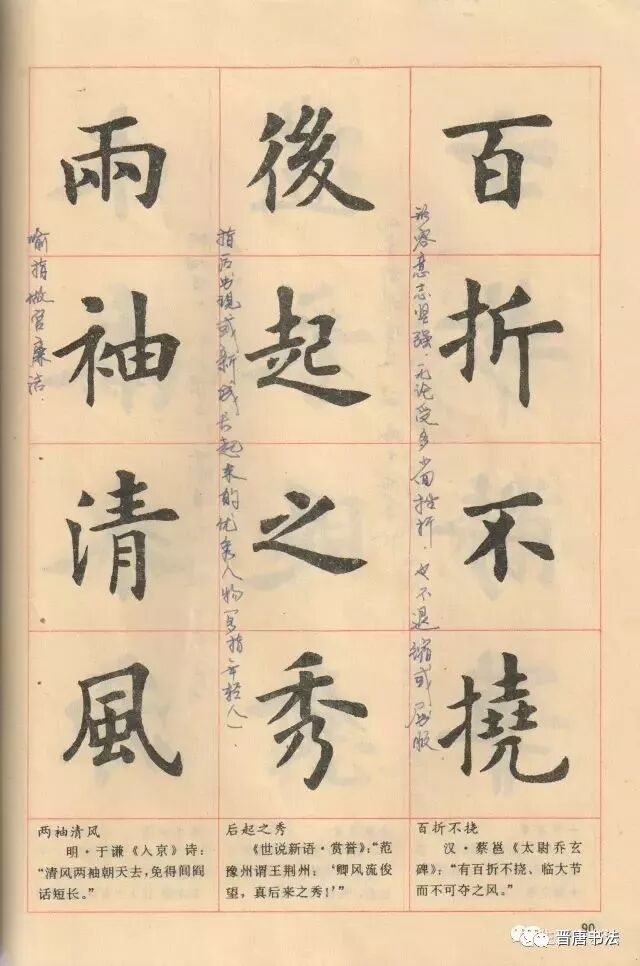 百折不撓
形容意志坚强，无论受多少回挫折，也不退缩或屈服
後起之秀
指后出现或新成长起来的优秀人物（多指年轻人）
兩袖清風
喻指做官廉洁．
百折不挠
汉·蔡邕《太尉乔玄
碑》：“有百折不挠、临大节
而不可夺之风。”
后起之秀
《世说新语·赏誉》：“范
豫州谓王荆州：‘卿风流俊
望，真后来之秀！’”
两袖清风
明·于谦《入京》诗：
“清风两袖朝天去，免得闾阎
话短长。”
90
晋唐书法